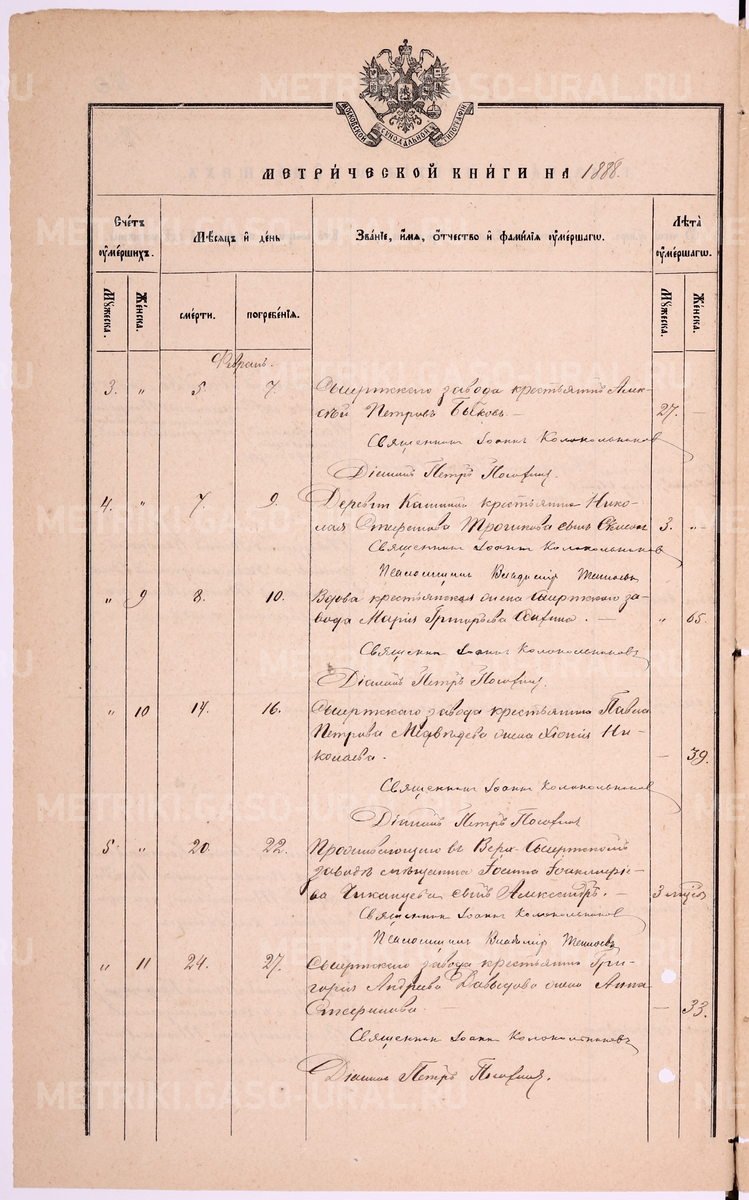 МОСКОВСКОЙ СѴНОДАЛЬНОЙ ТИПОГРАФІИ
МЕТРИ́ЧЕСКОЙ КНИ́ГИ НА 1888.
Сче́тъ ᲂу҆ме́ршихъ.
Мѣ́сѧцъ и҆ де́нь
Зва́нїе, и҆́мѧ, ѻ҆́тчество и҆ фами́лїѧ ᲂу҆ме́ршагѡ.
Лѣ́та ᲂу҆ме́ршагѡ.
Мꙋ́жеска.
Же́нска.
сме́рти.
погребе́нїѧ.
Мꙋ́жеска.
Же́нска.
Февраль.
3. " 5 7. Сысертскаго завода крестьянинъ Алек-
сѣй Петровъ Быковъ.— 27. —
Священникъ Іоаннъ Колокольниковъ
Діаконъ Петръ
4. " 7. 9. Деревни Кашиной крестьянина Нико-
лая Стефанова сынъ 3. "
Священникъ Іоаннъ Колокольниковъ
Псаломщикъ Владиміръ
" 9 8. 10. Вдова крестьянская жена Сысертскаго за-
вода Марія Григорьева — " 65.
Священникъ Іоаннъ Колокольниковъ
Діаконъ Петръ
" 10 14. 16. Сысертскаго завода крестьянина Павла
Петрова Медвѣдева жена Хіонія Ни-
колаева. — 39.
Священникъ Іоаннъ Колокольниковъ
Діаконъ Петръ
5. " 20. 22. Проживающаго въ Верх-Сысертскомъ
заводѣ мѣщанина
сынъ Александръ. — 3
Священникъ Іоаннъ Колокольниковъ
Псаломщикъ Владиміръ
" 11 24. 27. Сысертскаго завода крестьянина Гри-
горія Андреева Давыдова жена Анна
Стефанова. — — 33.
Священникъ Іоаннъ Колокольниковъ
Діаконъ Петръ
METRIKI.GASO-URAL.RU